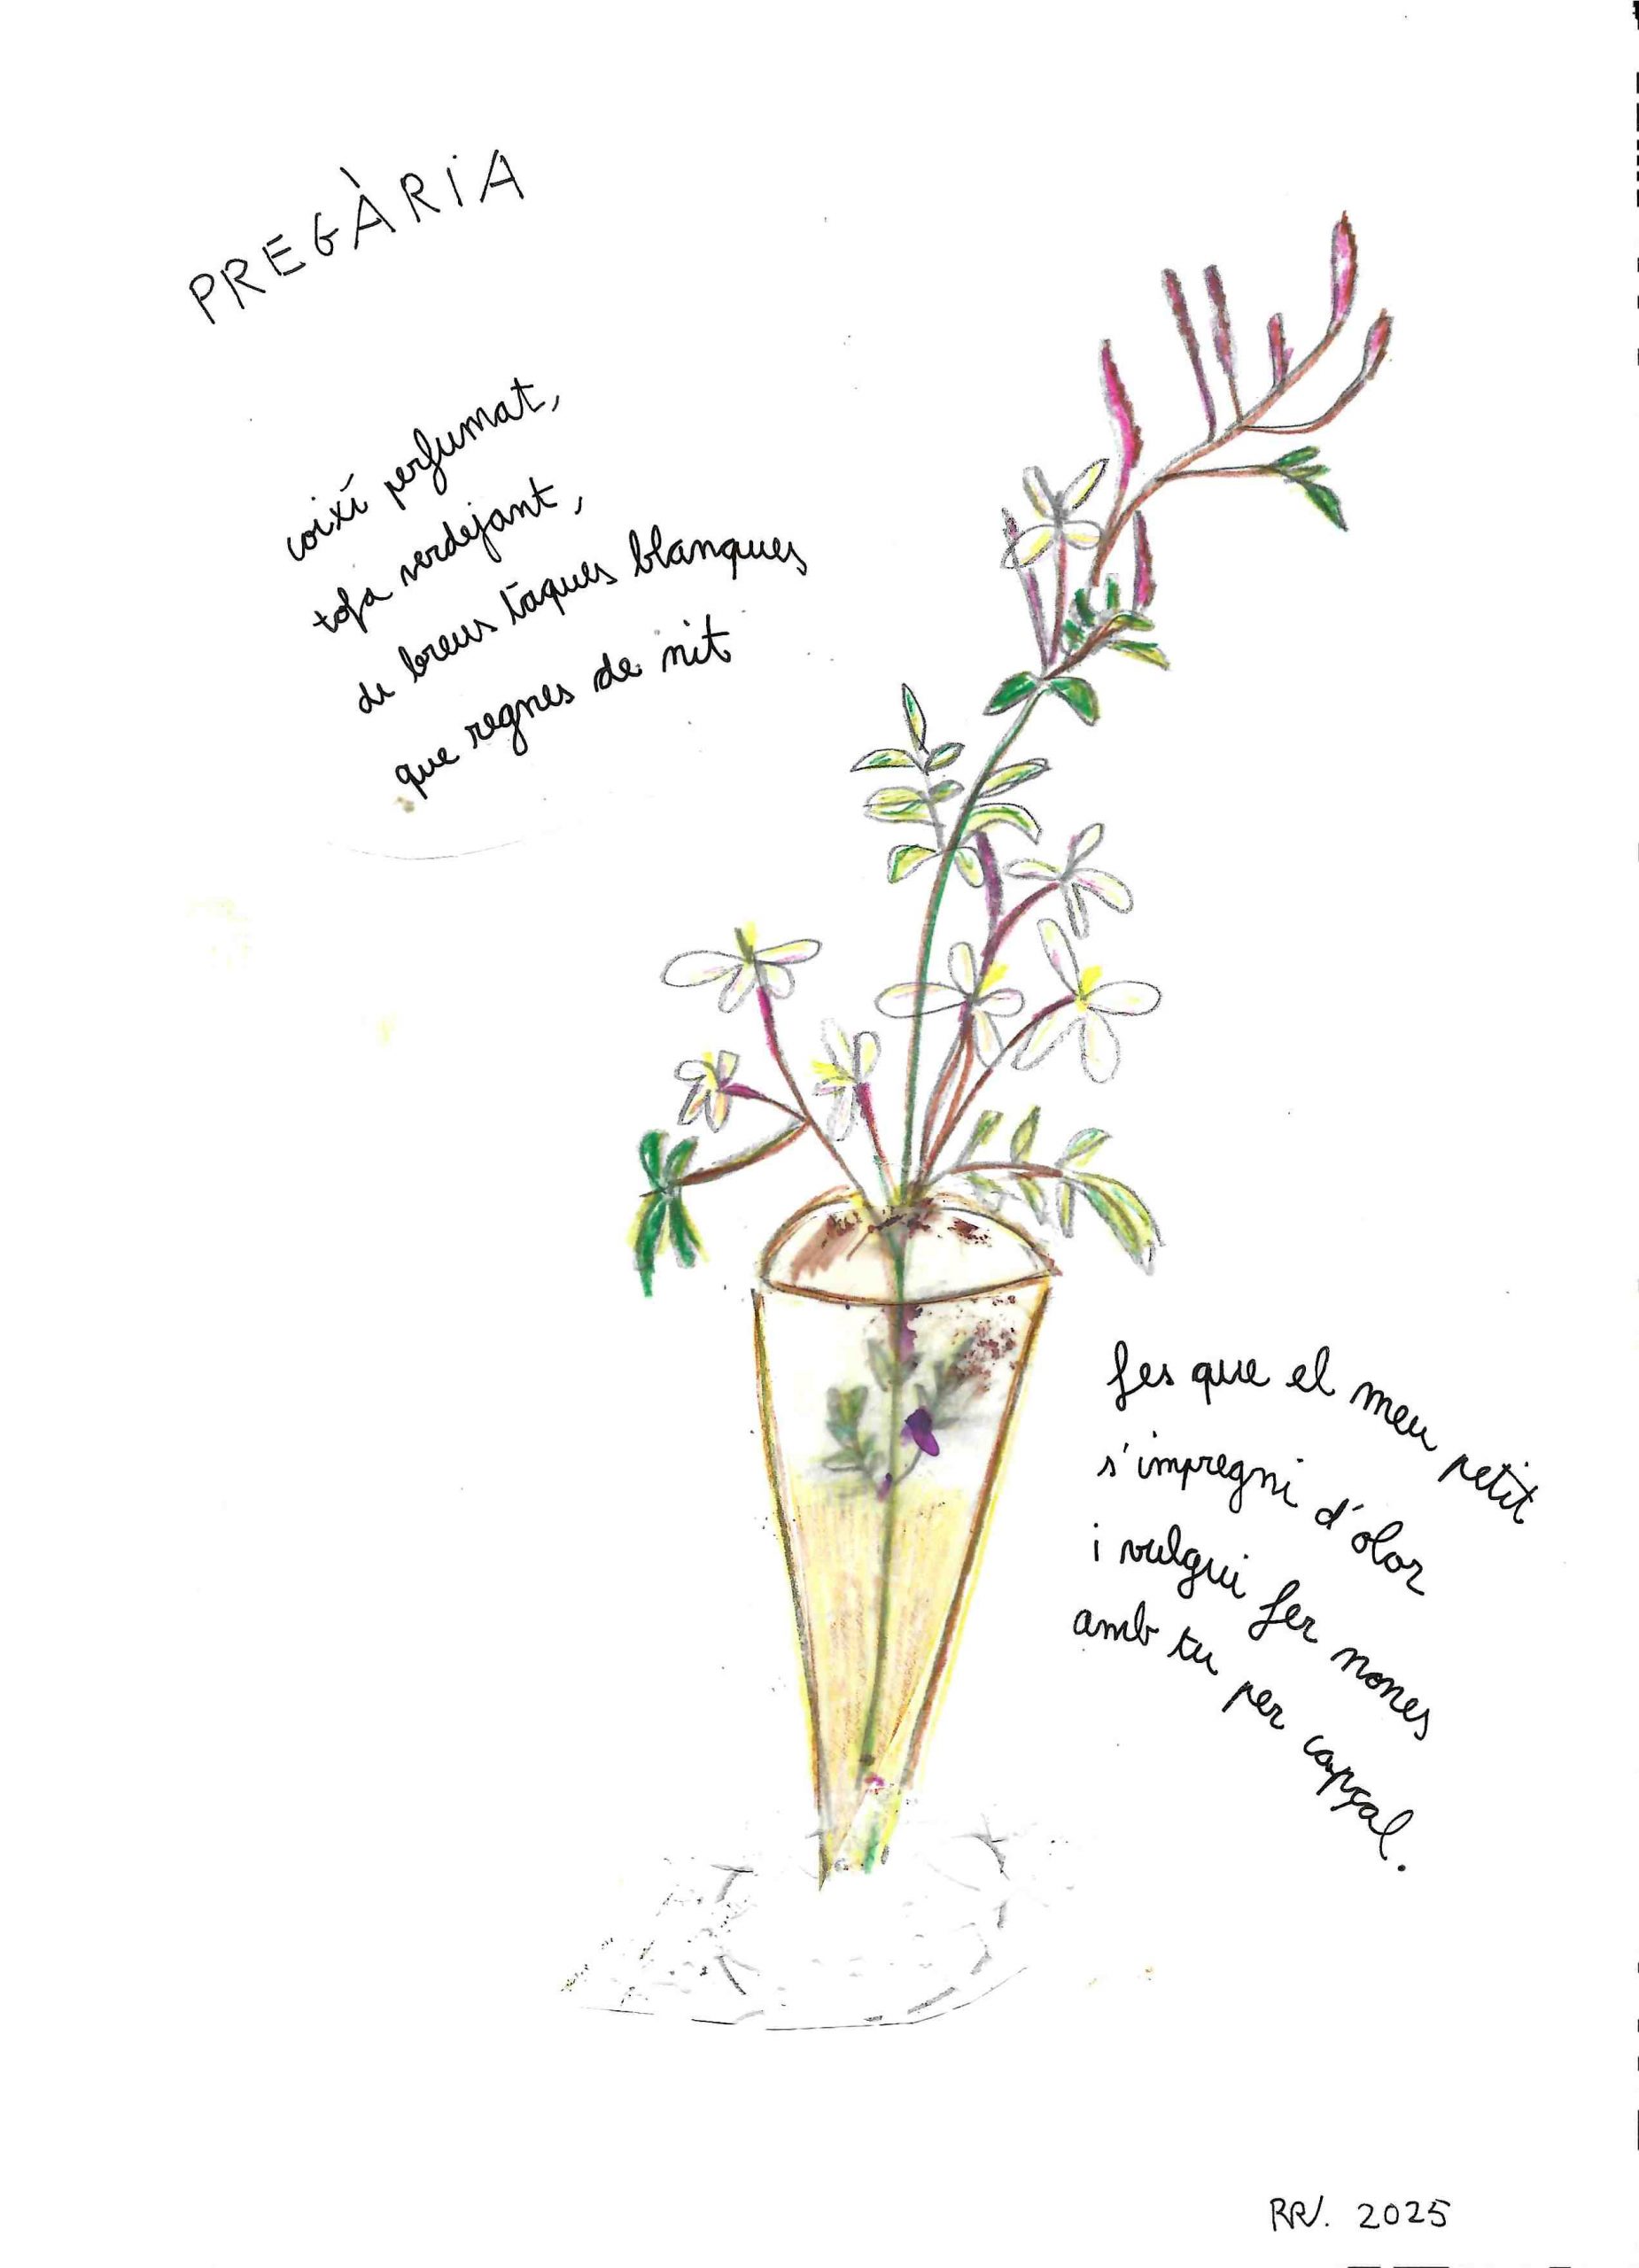 PREGÀRIA
coixí perfumat,
tofa verdejant,
de breus taques blanques
que regnes de nit
fes que el meu petit
s'impregni d'olor
i vulgui fer nones
amb tu per capçal.
RRV. 2025